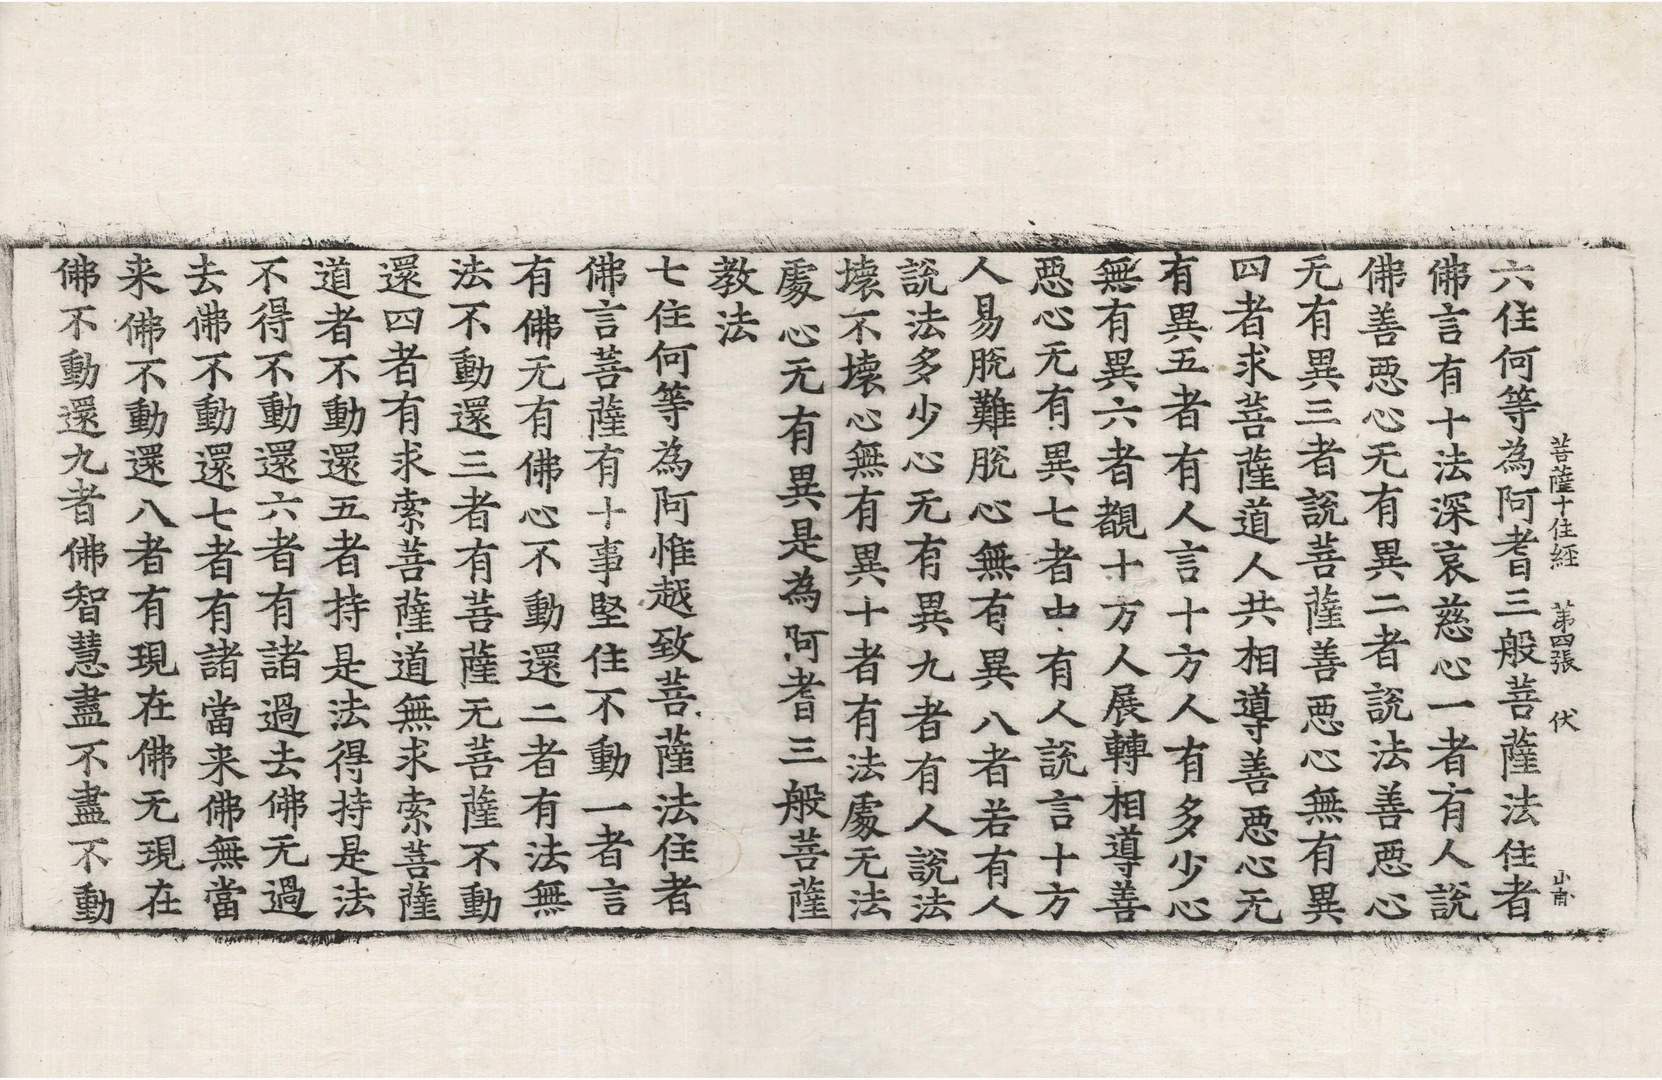 菩薩十住經 第四張 伏
六住何等為阿耆三般菩薩法住者
佛言有十法深哀慈心一者有人說
佛善惡心无有異二者說法善惡心
无有異三者說菩薩善惡心無有異
四者求菩薩道人共相導善惡心无
有異五者有人言十方人有多少心
無有異六者觀十方人展轉相導善
惡心无有異七者中有人說言十方
人易脫難脫心無有異八者若有人
說法多少心无有異九者有人說法
壞不壞心無有異十者有法處无法
處心无有異是為阿耆三般菩薩
教法
七住何等為阿惟越致菩薩法住者
佛言菩薩有十事堅住不動一者言
有佛无有佛心不動還二者有法無
法不動還三者有菩薩无菩薩不動
還四者有求索菩薩道無求索菩薩
道者不動還五者持是法得持是法
不得不動還六者有諸過去佛无過
去佛不動還七者有諸當来佛無當
来佛不動還八者有現在佛无現在
佛不動還九者佛智慧盡不盡不動